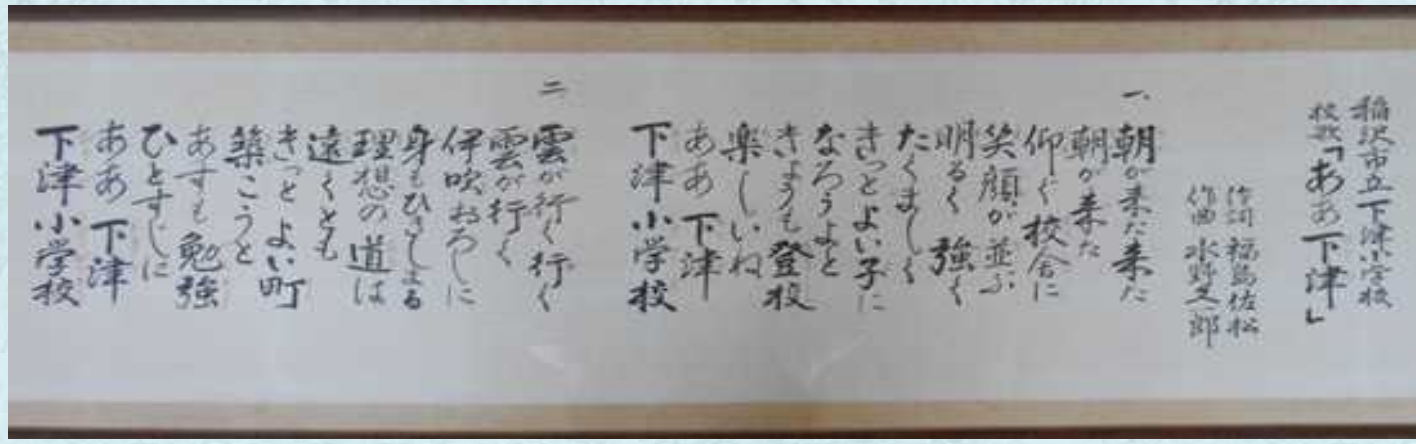 稲沢市立下津小学校
校歌「ああ下津」
作詞 福島佐松
作曲 水野又一郎
一、朝が来た来た
朝が来た
仰ぐ校舎に
笑顔が並ぶ
明るく強く
たくましく
きっとよい子に
なろうよと
きょうも登校
楽しいね
ああ下津
下津小学校
二 雲が行く行く
雲が行く
伊吹おろしに
身もひきしまる
理想の道は
遠くとも
きっとよい町
築こうと
あすも勉強
ひとすじに
ああ下津
下津小学校